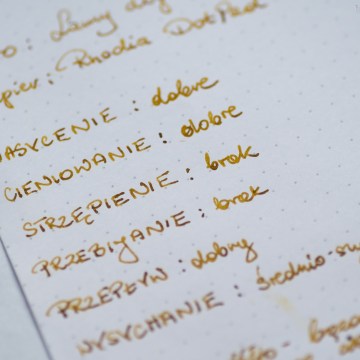 o : Lamy
pier : Rhodia DotPad
NASYCENIE : dobre
CIENIOWANIE : dobre
STRZĘPIENIE : brak
PRZEBIJANIE : brak
PRZEPŁYW : dobry
WYSYCHANIE : średnio-sz